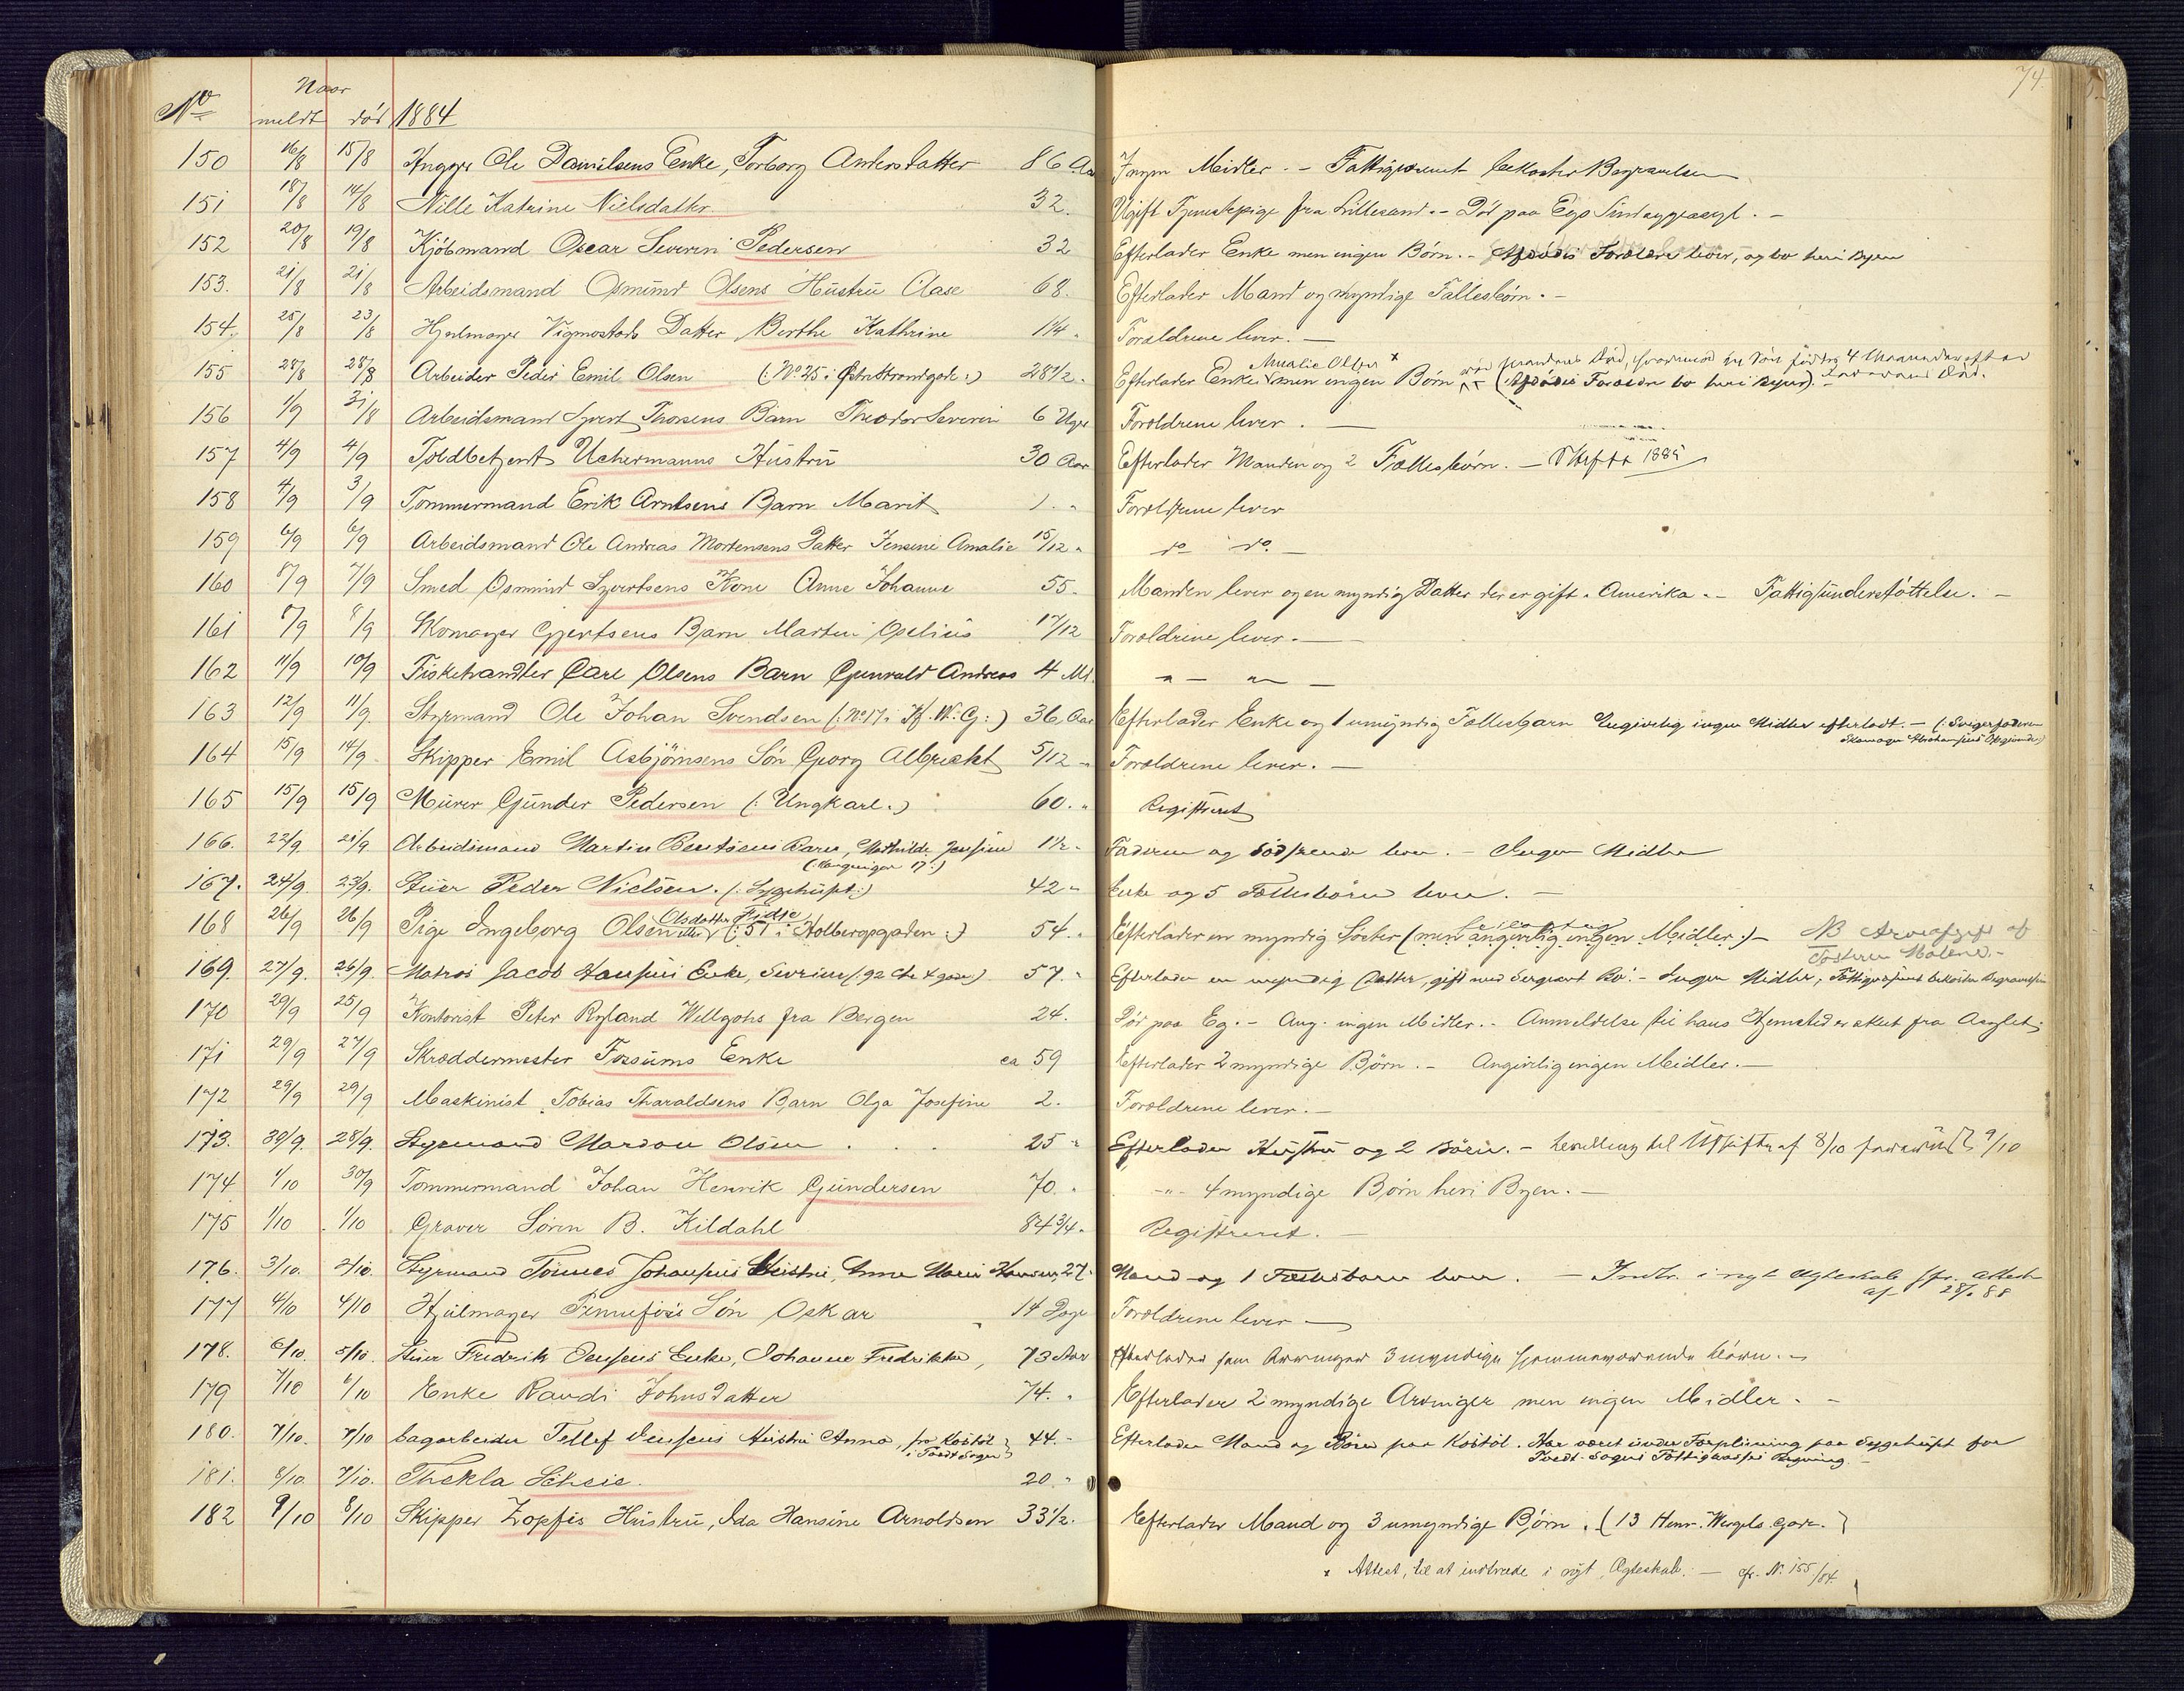 74.
Naar
No meldt død 1884
150 16/8 15/8 Ole Danielsens Enke, Torborg Andersdatter 86 Aar Ingen Midler. - Fattigvæsenet bekoster Begravelsen
151 18/8 14/8 Nille Katrine Nielsdatter 32. Ugift Tjenestepige fra Lillesand. - Død paa Egs Sindsygeasyl. -
152 20/8 19/8 Kjöbmand Oscar Severin Pedersen 32 Efterlader Enke men ingen Børn. - Afdødes Forældre lever, og bo heri Byen
153. 21/8 21/8 Arbeidsmand Osmund Olsens Hustru Aase 68. Efterlader Mand og myndige Fællesbørn. -
154. 25/8 23/8 Hjulmager Vigmostads Datter Berthe Kathrine 1 1/4 " Forældrene lever. -
Amalie Olsen x ved Mandens Død, hvorimod en Søn fødtes 4 Maaneder efter
155 28/8 28/8 Arbeider Peder Emil Olsen (: No 25 i Østre Strandgade :) 28 1/2. Efterlader Enke men ingen Børn (Afdødes Forældre bo heri Byen). -
156 1/9 31/8 Arbeidsmand Syvert Thorsens Barn Theodor Severin 6 Uger Forældrene lever. -
157 4/9 4/9 Toldbetjent Uchermanns Hustru 30 Aar Efterlader Manden og 2 Fællesbørn. - Skifte 1885
158 4/9 3/9 Tømmermand Erik Arntsens Barn Marit 1. " Forældrene lever
159 6/9 6/9 Arbeidsmand Ole Andreas Mortensens Datter Jensine Amalie 15/12 " do do. -
160 8/9 7/9 Smed Osmund Syvertsens Kone Anne Johanne 55. Manden lever og en myndig Datter der er gift i Amerika. - Fattigunderstøttelse. -
161 8/9 8/9 Skomager Gjertsens Barn Martin Oselius 17/12 Forældrene lever. -
162 11/9 10/9 Fiskehandler Carl Olsens Barn Gunvald Andreas 4 Md. " - " -
163 12/9 11/9 Styrmand Ole Johan Svendsen (: No 17 i H. W. G :) 36 Aar Efterlader Enke og 1 umyndig Fællesbarn Angivelig ingen Midler efterladt. - (: Svigerfaderen
Skomager Abrahamsens Opgivende :)
164 15/9 14/9 Skipper Emil Asbjørnsens Søn Georg Albrecht 5/12 " Forældrene lever. -
165 15/9 15/9 Murer Gunder Pedersen (: Ungkarl :) 60. " Registreret
166. 22/9 21/9 Arbeidsmand Martin Bentsens Barn, Mathilde Jensine 1 1/2 " Faderen og Sødskende lever. - Ingen Midler
167. 24/9. 23/9. Peder Nielsen. (: Sygehuset :) 42 " Enke og 5 Fællesbørn lever. -
Olsdatter
168 26/9 26/9 Pige Ingeborg Olsen (: 51 i Holbergsgaden :) 54. " Efterlader en myndig Søster (men angivelig ingen Midler :) - NB Arveafgift af
Søsteren Malene. -
169. 27/9. 26/9. Matros Jacob Hansens Enke, Severine (92 gade) 57. " Efterlader en myndig Datter, gift med Sergeant Bo. - Ingen Midler, Fattigvæsenet bekoster Begravelsen
170 29/9 25/9 Kontorist Peter Ryland Wellgohs fra Bergen 24. Død paa Eg. - Ang. ingen Midler. - Anmeldelse til hans Hjemsted er sket fra Asylet.
171 29/9 27/9 Skræddermester Fossums Enke ca 59 Efterlader 2 myndige Børn. - Angivelig ingen Midler. -
172 29/9 29/9 Maskinist Tobias Tharaldsens Barn Olga Josefine 2. Forældrene lever. -
173. 30/9. 28/9. Styrmand Olsen . . . 25 " Efterlader Hustru og 2 Børn. - Bevilling til Uskifte af 8/10 9/10
174 1/10 30/9 Tømmermand Johan Henrik Gundersen 70. " - " - 4 myndige Børn heri Byen. -
175 1/10 1/10 Graver Søren B. Kildahl 84 3/4. Registreret. -
176. 3/10. 2/10. Styrmand Tønnes Johansens Hustru, Anne Marie Hansen, 27. Mand og 1 Fællesbarn lever. - Indtr. i nyt Ægteskab
177 4/10 4/10 Hjulmager Søn Oskar 14 Dage Forældrene lever -
178. 6/10. 5/10. Fredrik Jensens Enke, Johanne Fredrikke, 73 Aar Efterlader som Arvinger 3 myndige hjemmeværende Børn. -
179 7/10 6/10 Enke Randi Johnsdatter 74. " Efterlader 2 myndige Arvinger men ingen Midler. -
180. 7/10. 7/10 Sagarbeider Tellef Jensens Hustru Anna, fra Kostøl i Tvedt Sogn 44. - Efterlader Mand og Børn paa Kostøl. Har været under Forpleining paa Sygehuset for
Tvedt Sogns Fattigkasses Regning. -
181. 8/10. 7/10. Thekla Scheie. 20. "
182 9/10 8/10 Skipper Zopfis Hustru, Ida Hansine Arnoldsen 33 1/2. Efterlader Mand og 3 umyndige Børn. (13 Henr. Wergels Gade.)
x Attest, til at indtræde i nyt Ægteskab. - cfr. No 155/84.